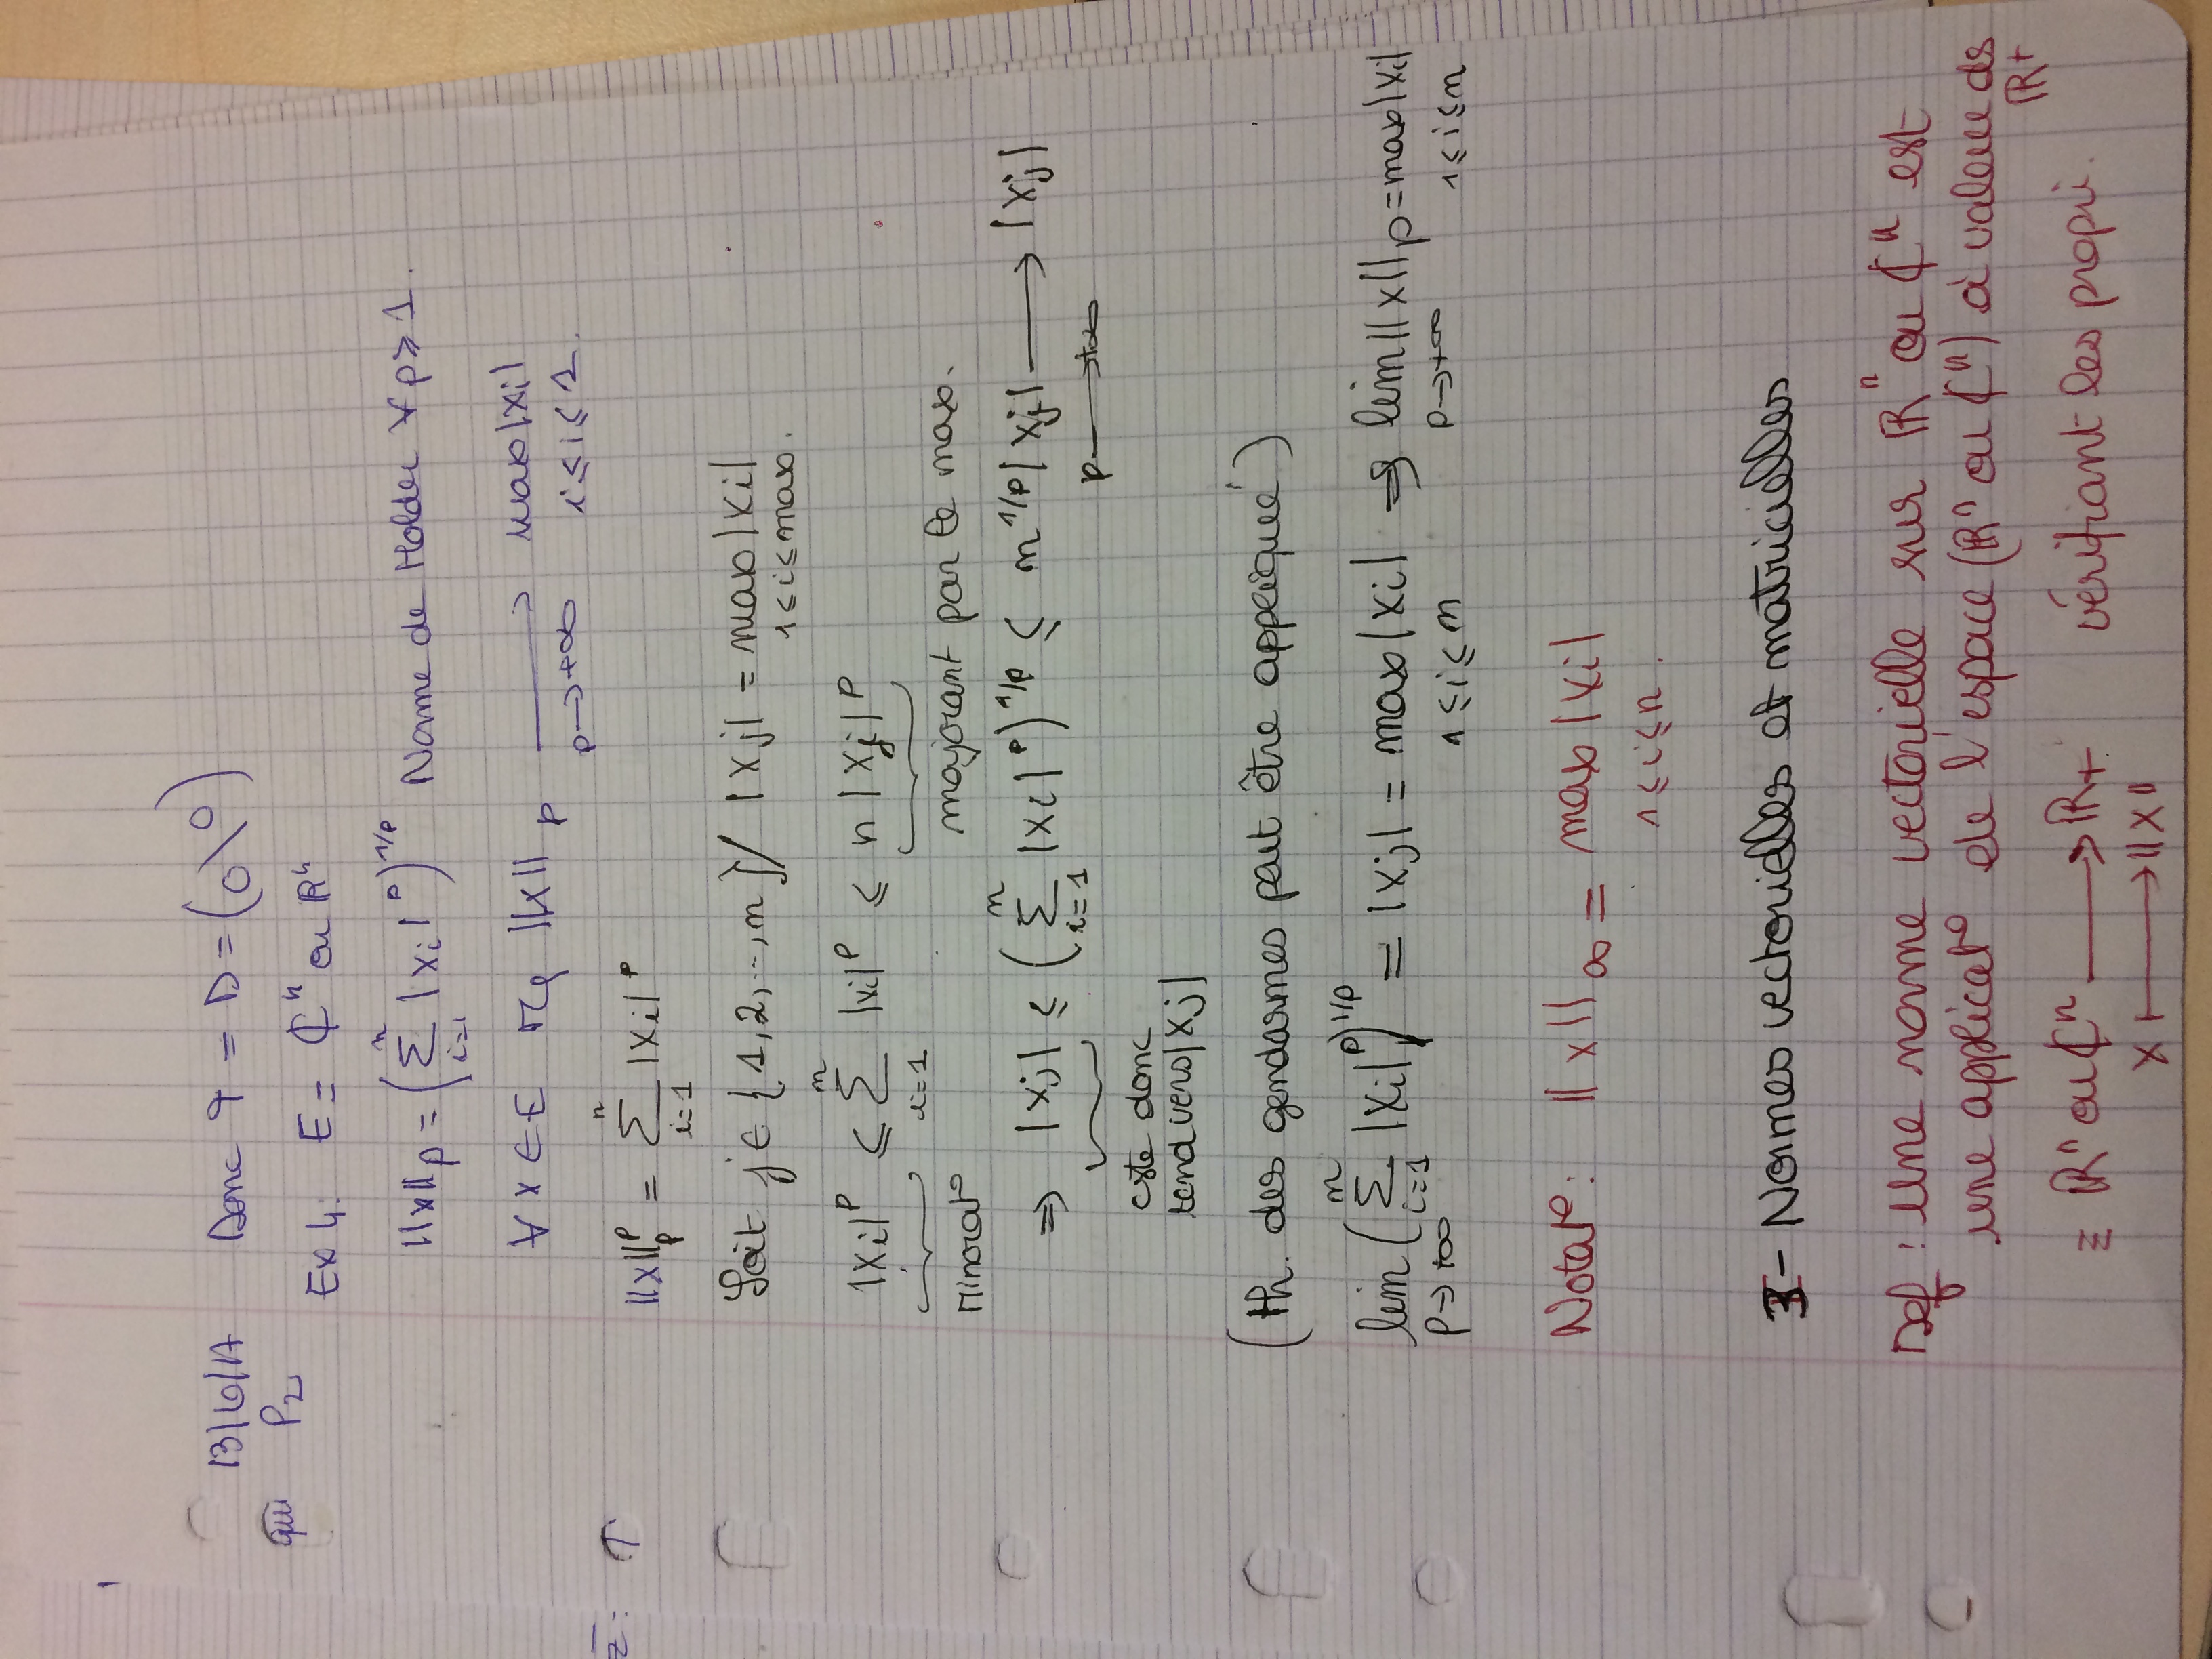 13/6/17 Donc T = D = (0\0)
qui P2
Ex 4: E = ℂⁿ ou ℝⁿ
||x||_p = (∑_{i=1}^{n} |xi|^p)^{1/p} Norme de Holder ∀ p ≥ 1.
∀ x ∈ E Mq ||x||_p ⟶_{p→+∞} max|xi| i≤i≤1.
z̄ = ↑
||x||_p^p = ∑_{i=1}^{n} |xi|^p
Soit j ∈ {1,2,..,n} / |xj| = max|xi| 1≤i≤max.
|xi|^p ≤ ∑_{i=1}^{n} |xi|^p ≤ n |xj|^p
Minorat° majorant par le max.
⇒ |xj| ≤ (∑_{i=1}^{n} |xi|^p)^{1/p} ≤ n^{1/p} |xj| ⟶_{p→+∞} |xj|
cste donc
tend vers |xj|
(th. des gendarmes peut être appliqué)
lim_{p→+∞} (∑_{i=1}^{n} |xi|^p)^{1/p} = |xj| = max|xi| 1≤i≤n ⇒ lim_{p→+∞} ||x||_p = max|xi| 1≤i≤n
Notat°: ||x||_∞ = max|xi|
1≤i≤n.
I- Normes vectorielles et matricielles
Def : une norme vectorielle sur ℝⁿ ou ℂⁿ est
une applicat° de l'espace (ℝⁿ ou ℂⁿ) à valeur ds
ℝ+
≡ ℝⁿ ou ℂⁿ ⟶ ℝ+ vérifiant les propri.
x ⟼ ||x||